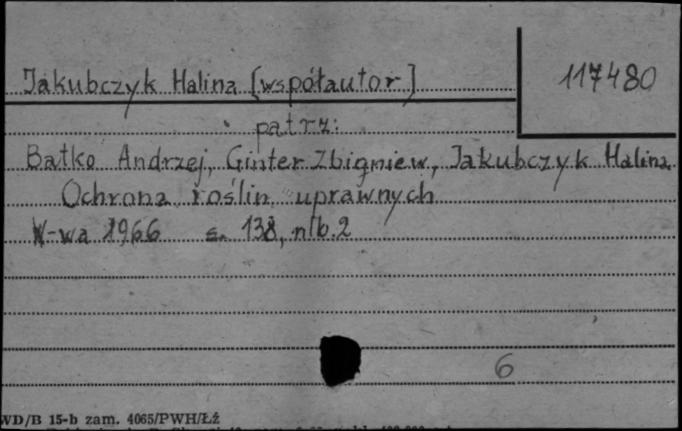 Jakubczyk Halina [współautor]
117480
patrz:
Batko Andrzej, Ginter Zbigniew, Jakubczyk Halina
Ochrona roślin uprawnych
W-wa 1966 s. 138, nlb. 2
6
WD/B 15-b zam. 4065/PWH/Łź